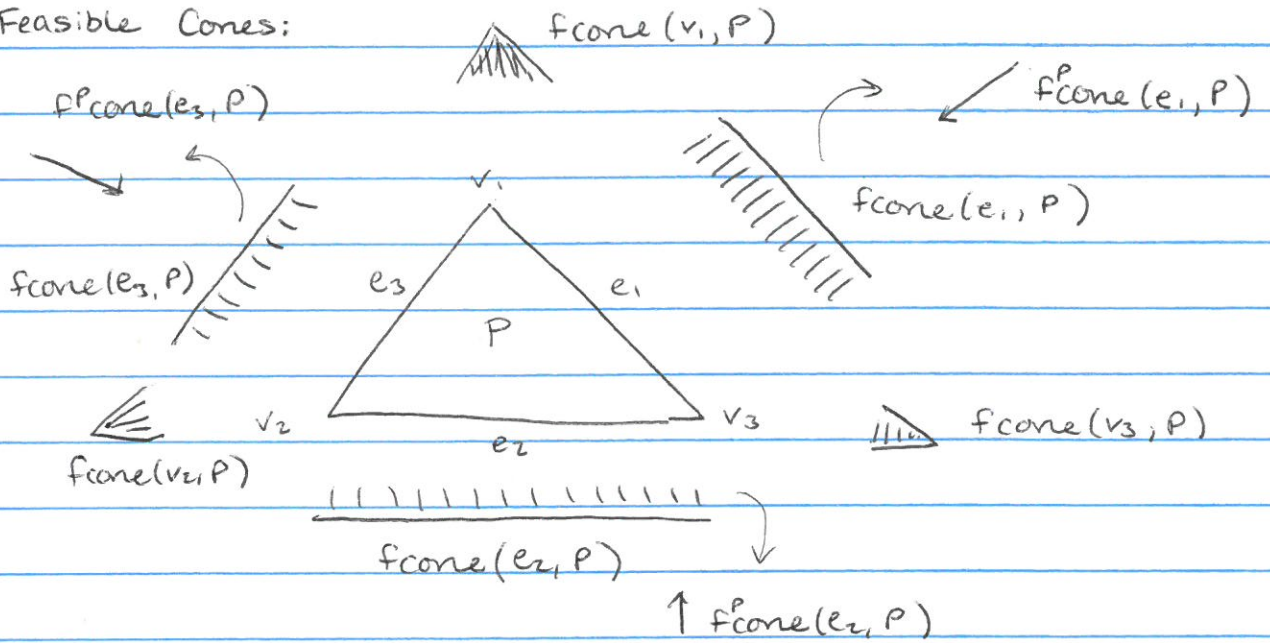 Feasible Cones:
fcone(v₁, P)
fᵖcone(e₃, P)
fᵖcone(e₁, P)
v₁
fcone(e₁, P)
fcone(e₃, P)
e₃
e₁
P
v₂
v₃
fcone(v₃, P)
e₂
fcone(v₂, P)
fcone(e₂, P)
fᵖcone(e₂, P)